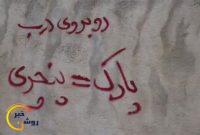 روبروی درب
پارک = پنچری
خبر
روشن